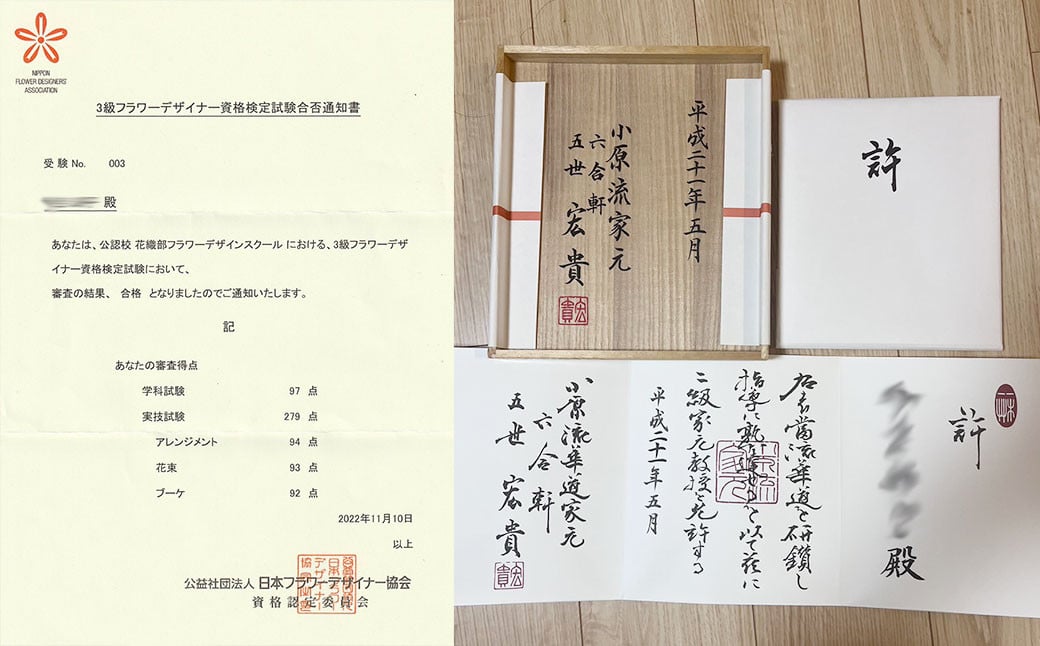 NIPPON
FLOWER DESIGNERS'
ASSOCIATION
3級フラワーデザイナー資格検定試験合否通知書
受験No. 003
殿
あなたは、公認校 花織部フラワーデザインスクール における、3級フラワーデザ
イナー資格検定試験において、
審査の結果、 合格 となりましたのでご通知いたします。
記
あなたの審査得点
学科試験 97 点
実技試験 279 点
アレンジメント 94 点
花束 93 点
ブーケ 92 点
2022年11月10日
以上
公益社団法人 日本フラワーデザイナー協会
資格認定委員会
平成二十一年五月
小原流家元
六合軒
五世 宏貴
許
許
殿
右者當流華道を研鑽し
指導に熟達せるを以て茲に
二級家元教授を允許する
平成二十一年五月
小原流華道家元
六合軒
五世 宏貴